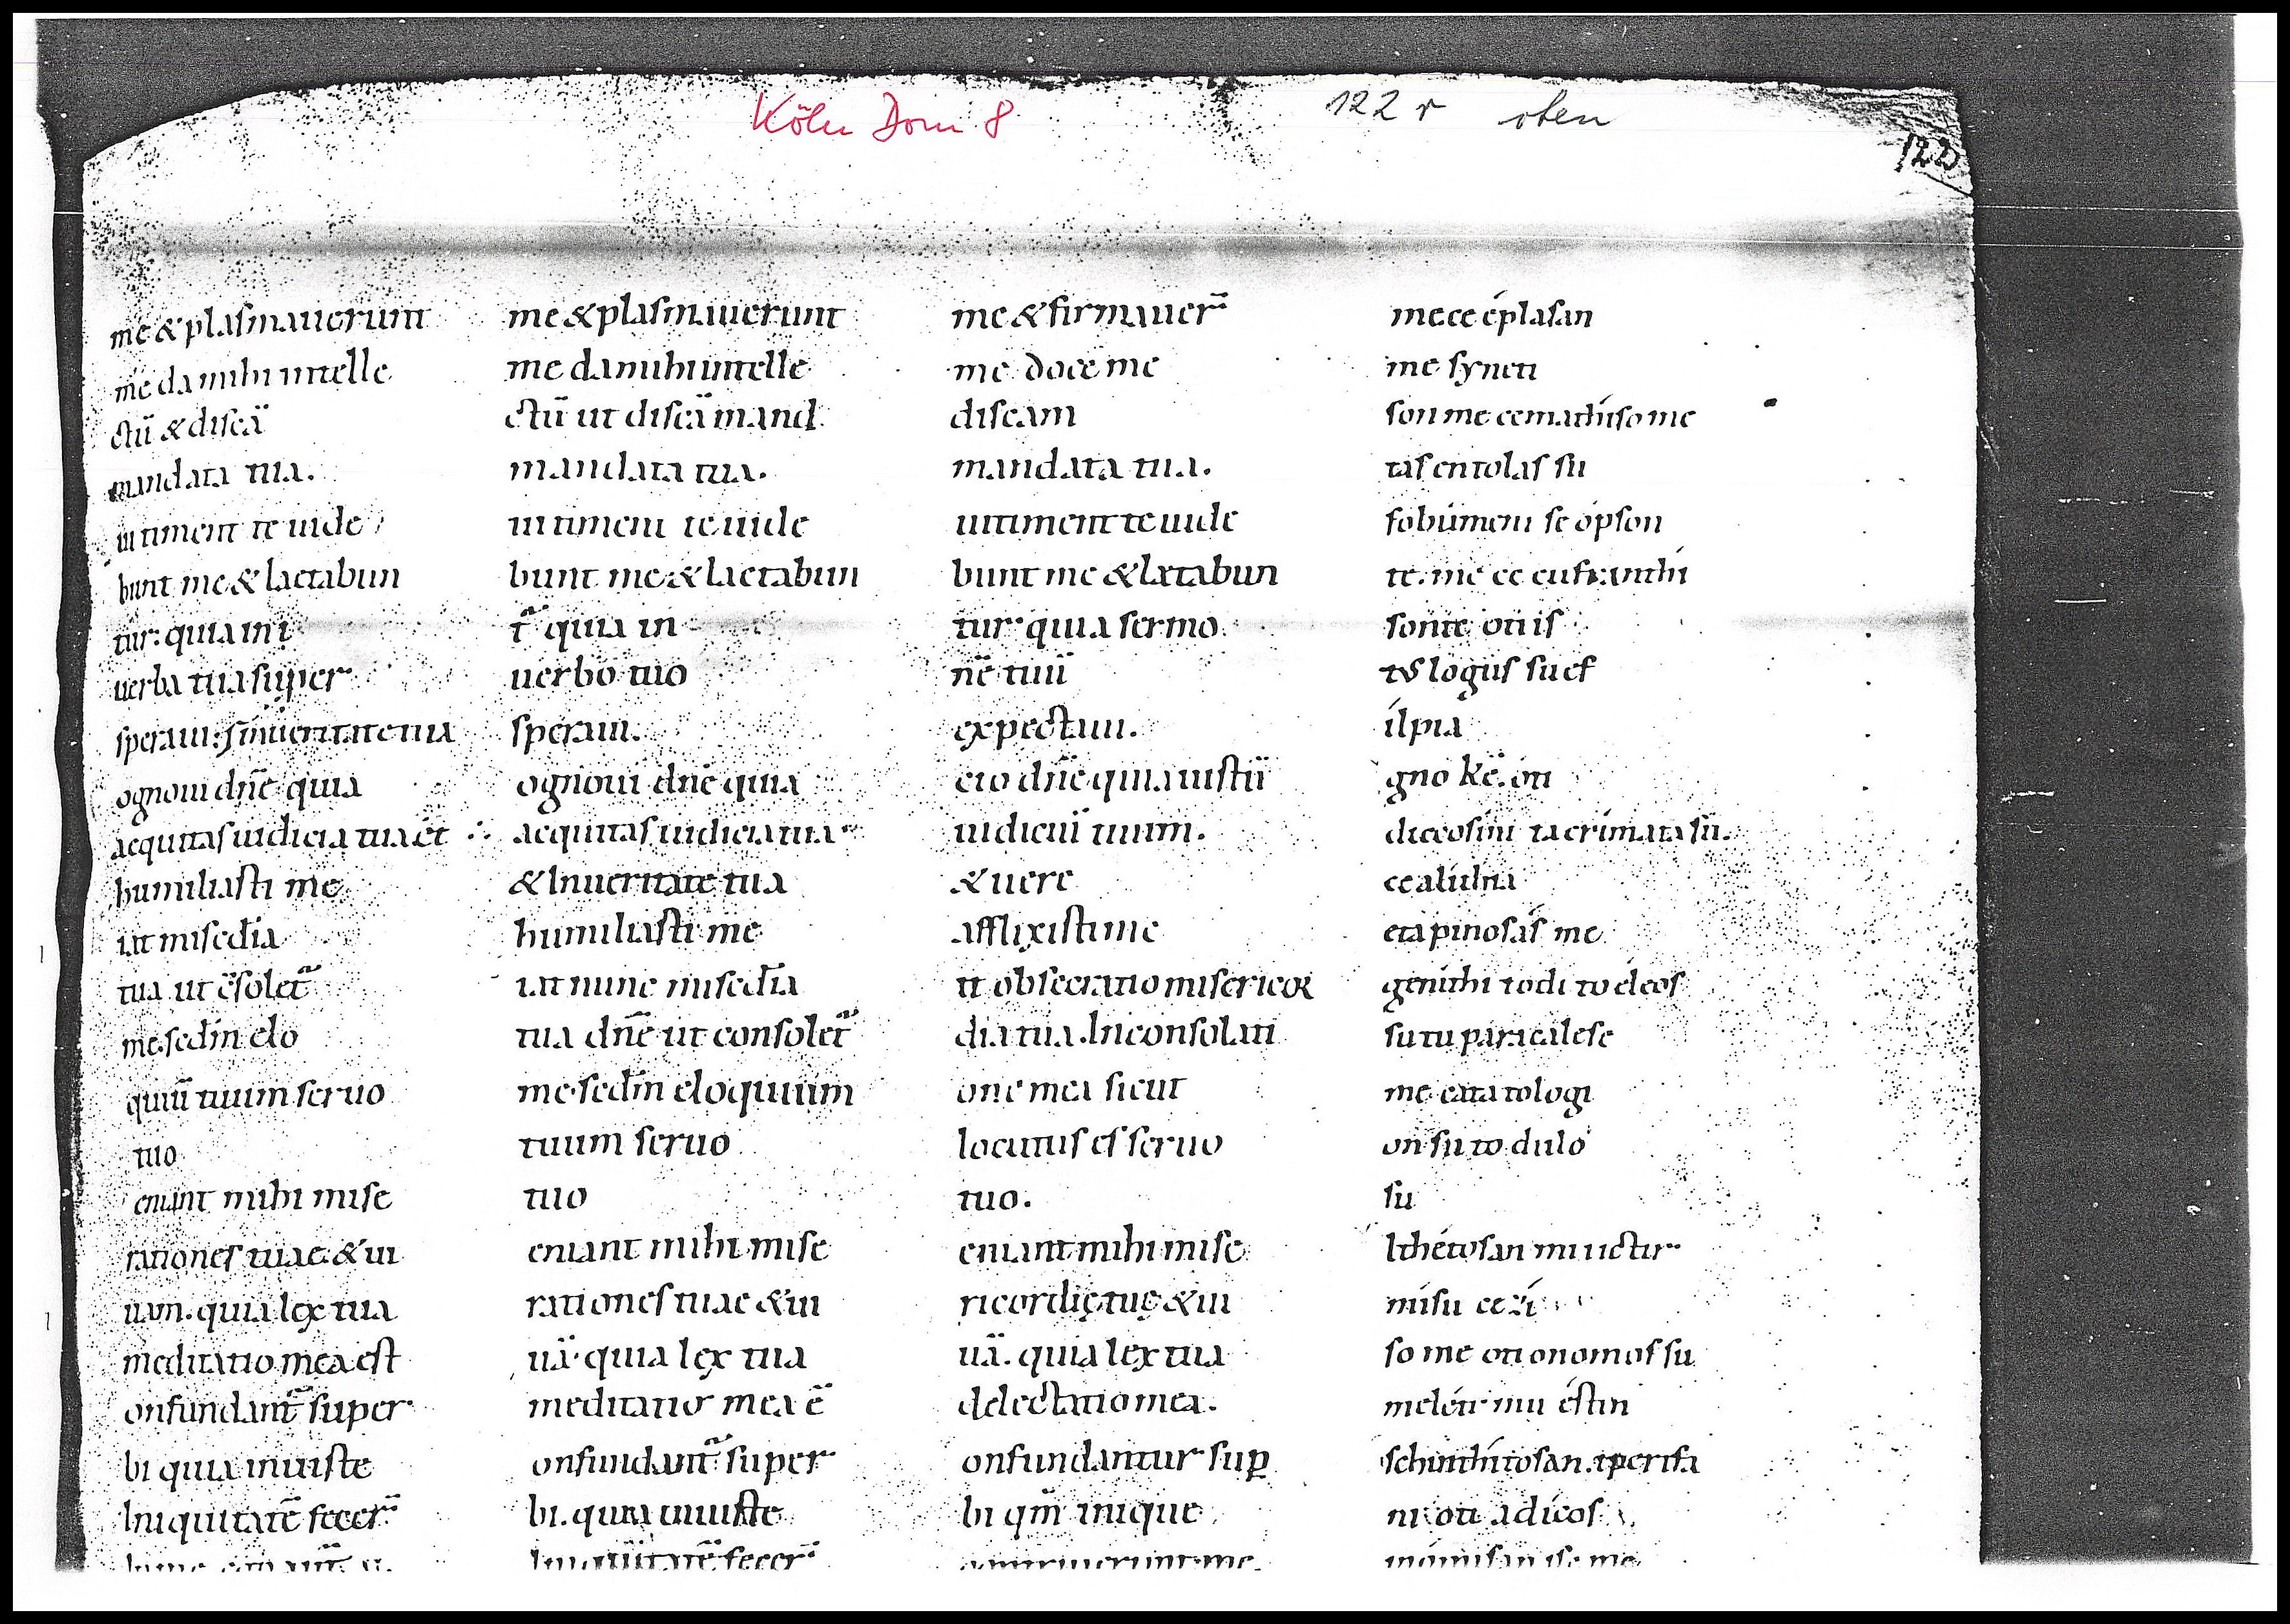 Köln Dom 8
122 r oben
122
me & plasmauerunt
me da mihi intelle
ctū & discā
mandata tua.
ui timent te uide
bunt me & laetabun
tur: quia in i
uerba tua super
speraui: sīn ueritate tua
ognoui dn̄e quia
aequitas iudicia tua ēt
humiliasti me
iat misc̄dia
tua ut c̄solet̄
me. sēdin elo
quiū tuum seruo
tuo
eniant mihi mise
rationes tuae & ui
uam. quia lex tua
meditatio mea est
onfundant̄ super
bi quia iniuste
Iniquitatē fecer̄
me & plasmauerunt
me da mihi intelle
ctū ut discā mand
mandata tua.
ui timent te uide
bunt me & laetabun
t̄ quia in
uerbo tuo
speraui.
ognioui dn̄e quia
aequitas iudicia tua
& In ueritate tua
humiliasti me
iat nunc misc̄dia
tua dn̄e ut consolet̄
me. sēdin eloquium
tuum seruo
tuo
eniant mihi mise
rationes tuae & ui
uā. quia lex tua
meditatio mea ē
onfundant̄ super
bi. quia iniuste
Iniquitatē fecer̄
me & firmauer̄
me doce me
discam
mandata tua.
ui timent te uide
bunt me & lętabun
tur quia sermo
nē tuū
expectaui.
cio dn̄e quia iustū
iudiciū tuum.
& uere
afflixisti me
it obsecratio misericor
dia tua. In consolati
one mea sicut
locutus es seruo
tuo.
eniant mihi mise
ricordię tuę & ui
uā. quia lex tua
delectatio mea.
onfundantur sup
bi qm̄ inique
me ce éplasan
me syneti
son me ce mathísome
tas entolas su
fobúmeni se ópson
te. me ce eufranthí
sonte oti is
tos logús su ef
ílpia
gno kē. óti
diceosíni ta crímata sú.
ce alithia
etapinosás me
genithi to di to eleos
su tu paracalese
me cata tologi
on su to dulo
su
lthétosan mi uictir
mísu ce zí
so me oti onomos su
meléti mu éstin
schinthítosan. yperifa
ni oti adícos